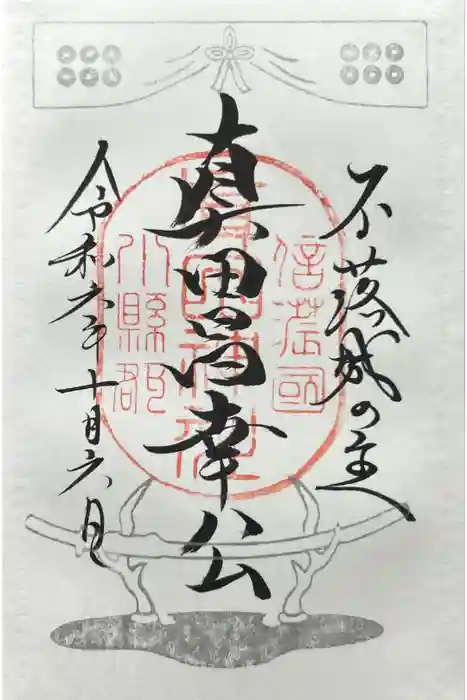 不落城の主
真田昌幸公
信濃國
眞田神社
小縣郡
令和六年
十月六日